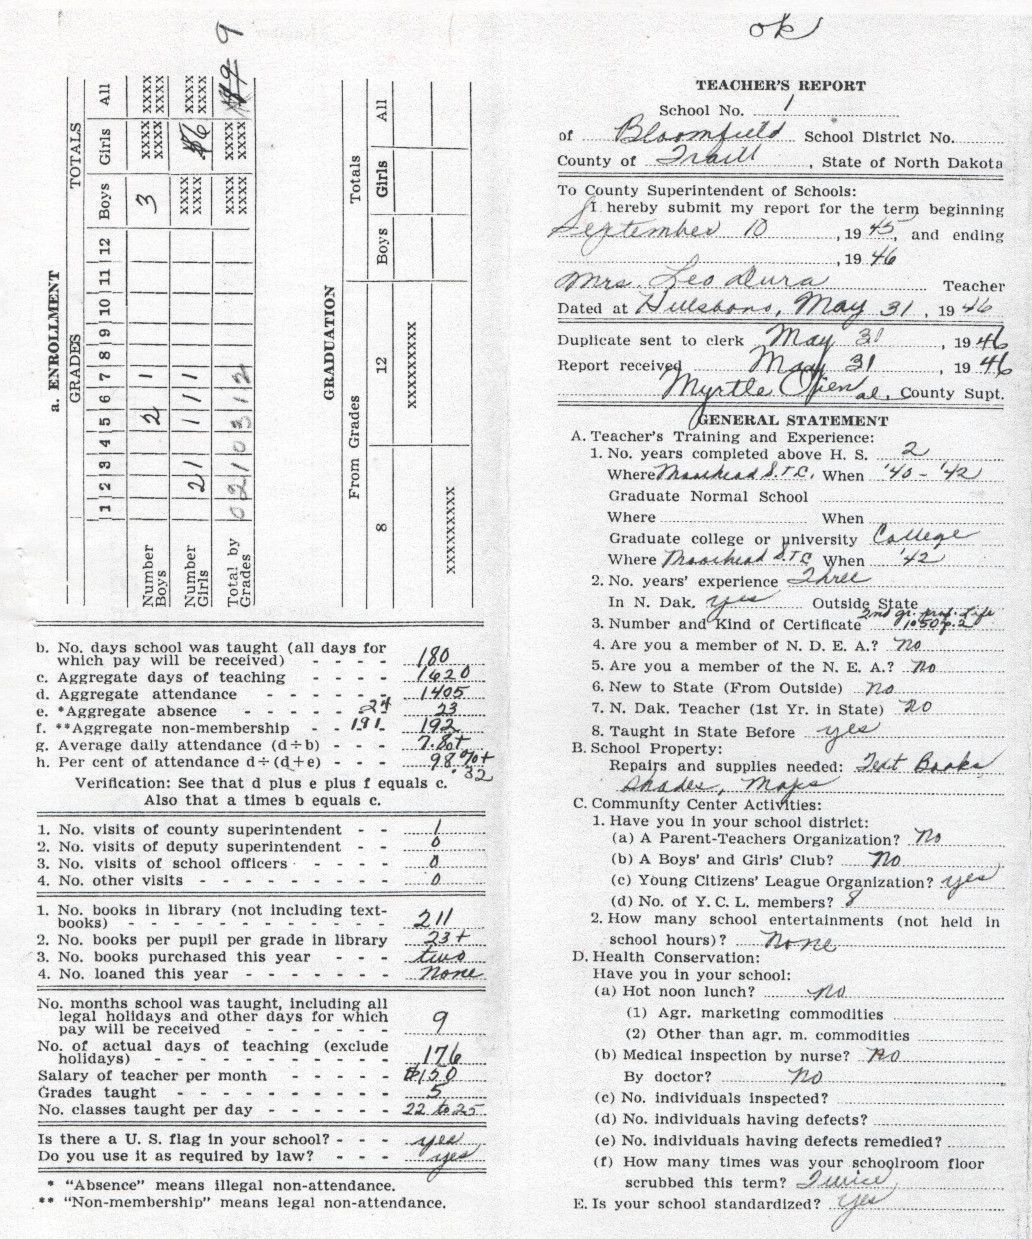 ok
TEACHER'S REPORT
School No. 1
of Bloomfield School District No.
County of Traill, State of North Dakota
To County Superintendent of Schools:
I hereby submit my report for the term beginning
September 10, 1945, and ending
, 1946
Mrs. Leo Dura Teacher
Dated at Hillsboro, May 31, 1946
Duplicate sent to clerk May 31, 1946
Report received May 31, 1946
Myrtle Opien al, County Supt.
GENERAL STATEMENT
A. Teacher's Training and Experience:
1. No. years completed above H. S. 2
Where Moorhead S.T.C. When '40 - '42
Graduate Normal School
Where When
Graduate college or university College
Where Moorhead S.T.C When '42
2. No. years' experience Three
In N. Dak. yes Outside State
3. Number and Kind of Certificate 2nd gr. prof. Life
4. Are you a member of N. D. E. A.? No
5. Are you a member of the N. E. A.? No
6. New to State (From Outside) No
7. N. Dak. Teacher (1st Yr. in State) No
8. Taught in State Before yes
B. School Property:
Repairs and supplies needed: Text Books
shades, Maps
C. Community Center Activities:
1. Have you in your school district:
(a) A Parent-Teachers Organization? No
(b) A Boys' and Girls' Club? No
(c) Young Citizens' League Organization? yes
(d) No. of Y. C. L. members? 8
2. How many school entertainments (not held in
school hours)? None
D. Health Conservation:
Have you in your school:
(a) Hot noon lunch? no
(1) Agr. marketing commodities
(2) Other than agr. m. commodities
(b) Medical inspection by nurse? no
By doctor? No
(c) No. individuals inspected?
(d) No. individuals having defects?
(e) No. individuals having defects remedied?
(f) How many times was your schoolroom floor
scrubbed this term? Twice
E. Is your school standardized? Yes
a. ENROLLMENT
GRADES TOTALS
1 2 3 4 5 6 7 8 9 10 11 12 Boys Girls All
Number Boys 2 1 3 XXXX XXXX
XXXX XXXX
Number Girls 2 1 1 1 1 XXXX 6 XXXX
XXXX XXXX
Total by Grades 0 2 1 0 3 1 2 XXXX XXXX 9
XXXX XXXX
GRADUATION
From Grades Totals
8 12 Boys Girls All
XXXXXXXXX
XXXXXXXXX
b. No. days school was taught (all days for
which pay will be received) - - - - 180
c. Aggregate days of teaching - - - - 1620
d. Aggregate attendance - - - - - - 1405
e. *Aggregate absence - - - - - 24 23
f. **Aggregate non-membership - - 191 - 192
g. Average daily attendance (d÷b) - - - 7.8+
h. Per cent of attendance d÷(d+e) - - - 98%+
.32
Verification: See that d plus e plus f equals c.
Also that a times b equals c.
1. No. visits of county superintendent - - 1
2. No. visits of deputy superintendent - - 0
3. No. visits of school officers - - - - 0
4. No. other visits - - - - - - - - - 0
1. No. books in library (not including text-
books) - - - - - - - - - - - - 211
2. No. books per pupil per grade in library 23+
3. No. books purchased this year - - - two
4. No. loaned this year - - - - - - - none
No. months school was taught, including all
legal holidays and other days for which
pay will be received - - - - - - 9
No. of actual days of teaching (exclude
holidays) - - - - - - - - - - 176
Salary of teacher per month - - - - - $150
Grades taught - - - - - - - - - - 5
No. classes taught per day - - - - - - 22 to 25
Is there a U. S. flag in your school? - - - yes
Do you use it as required by law? - - - yes
* "Absence" means illegal non-attendance.
** "Non-membership" means legal non-attendance.